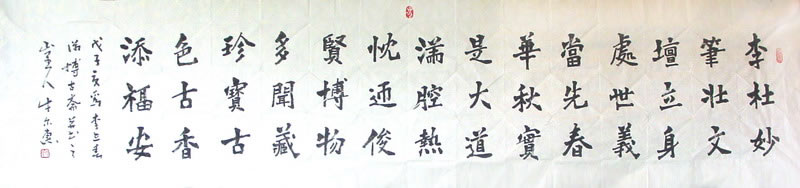 李杜妙
筆壯文
壇立身
處世義
當先春
華秋實
是大道
滿腔熱
忱迎俊
賢博物
多聞藏
珍寶古
色古香
添福安
戊子
博古齋